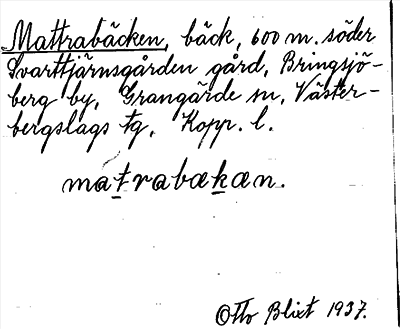 Mattrabäcken, bäck, 600 m. söder
Svarttjärnsgården gård, Bringsjö-
berg by, Grangärde sn, Väster-
bergslags tg, Kopp. l.
matrabækæn.
Otto Blixt 1937.